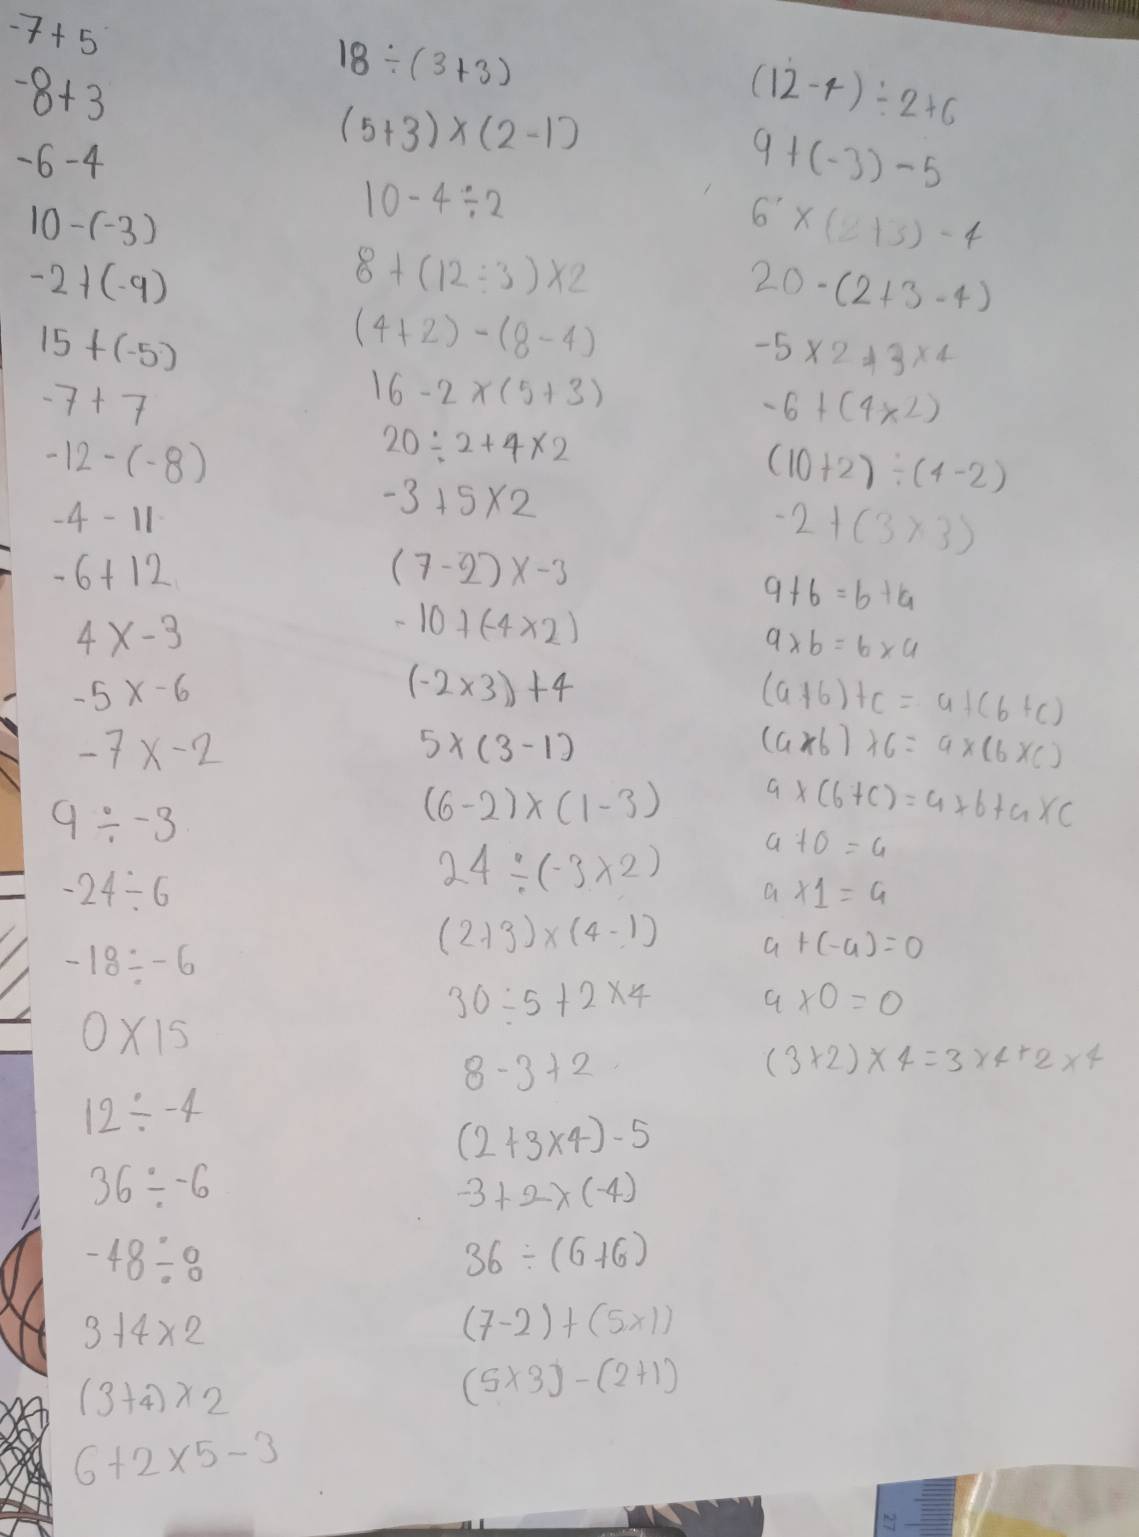 -7+5
-8+3
-6-4
10-(-3)
-2+(-9)
15+(-5)
-7+7
-12-(-8)
-4-11
-6+12
4×-3
-5×-6
-7×-2
9÷-3
-24÷6
-18÷-6
0×15
12÷-4
36÷-6
-48÷8
3+4×2
(3+4)×2
6+2×5-3
18÷(3+3)
(5+3)×(2-1)
10-4÷2
8+(12÷3)×2
(4+2)-(8-4)
16-2×(5+3)
20÷2+4×2
-3+5×2
(7-2)×-3
-10+(-4×2)
(-2×3)+4
5×(3-1)
(6-2)×(1-3)
24÷(-3×2)
(2+3)×(4-1)
30÷5+2×4
8-3+2
(2+3×4)-5
-3+2×(-4)
36÷(6+6)
(7-2)+(5×1)
(5×3)-(2+1)
(12-4)÷2+6
9+(-3)-5
6×(2+3)-4
20-(2+3-4)
-5×2+3×4
-6+(4×2)
(10+2)÷(4-2)
-2+(3×3)
a+b=b+a
a×b=b×a
(a+b)+c=a+(b+c)
(a×b)×c=a×(b×c)
a×(b+c)=a×b+a×c
a+0=a
a×1=a
a+(-a)=0
a×0=0
(3+2)×4=3×4+2×4
27